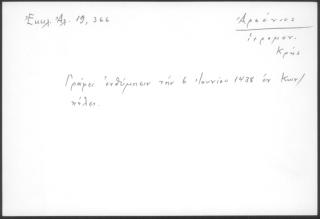 Ἐκκλ. Ἀλ. 19, 366
Ἀρσένιος
ἱερομον.
Κρής
Γράφει ἐνθύμησιν τήν 6 Ἰουνίου 1438 ἐν Κων/
πόλει.